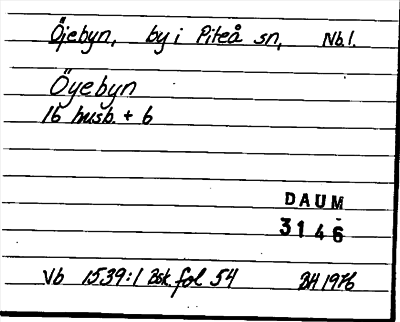 Öjebyn, by i Piteå sn, Nb.l.
Öyebyn
16 husb. + 6
DAUM
3146
Vb 1539:1 Bsk. fol 54 BH 1976